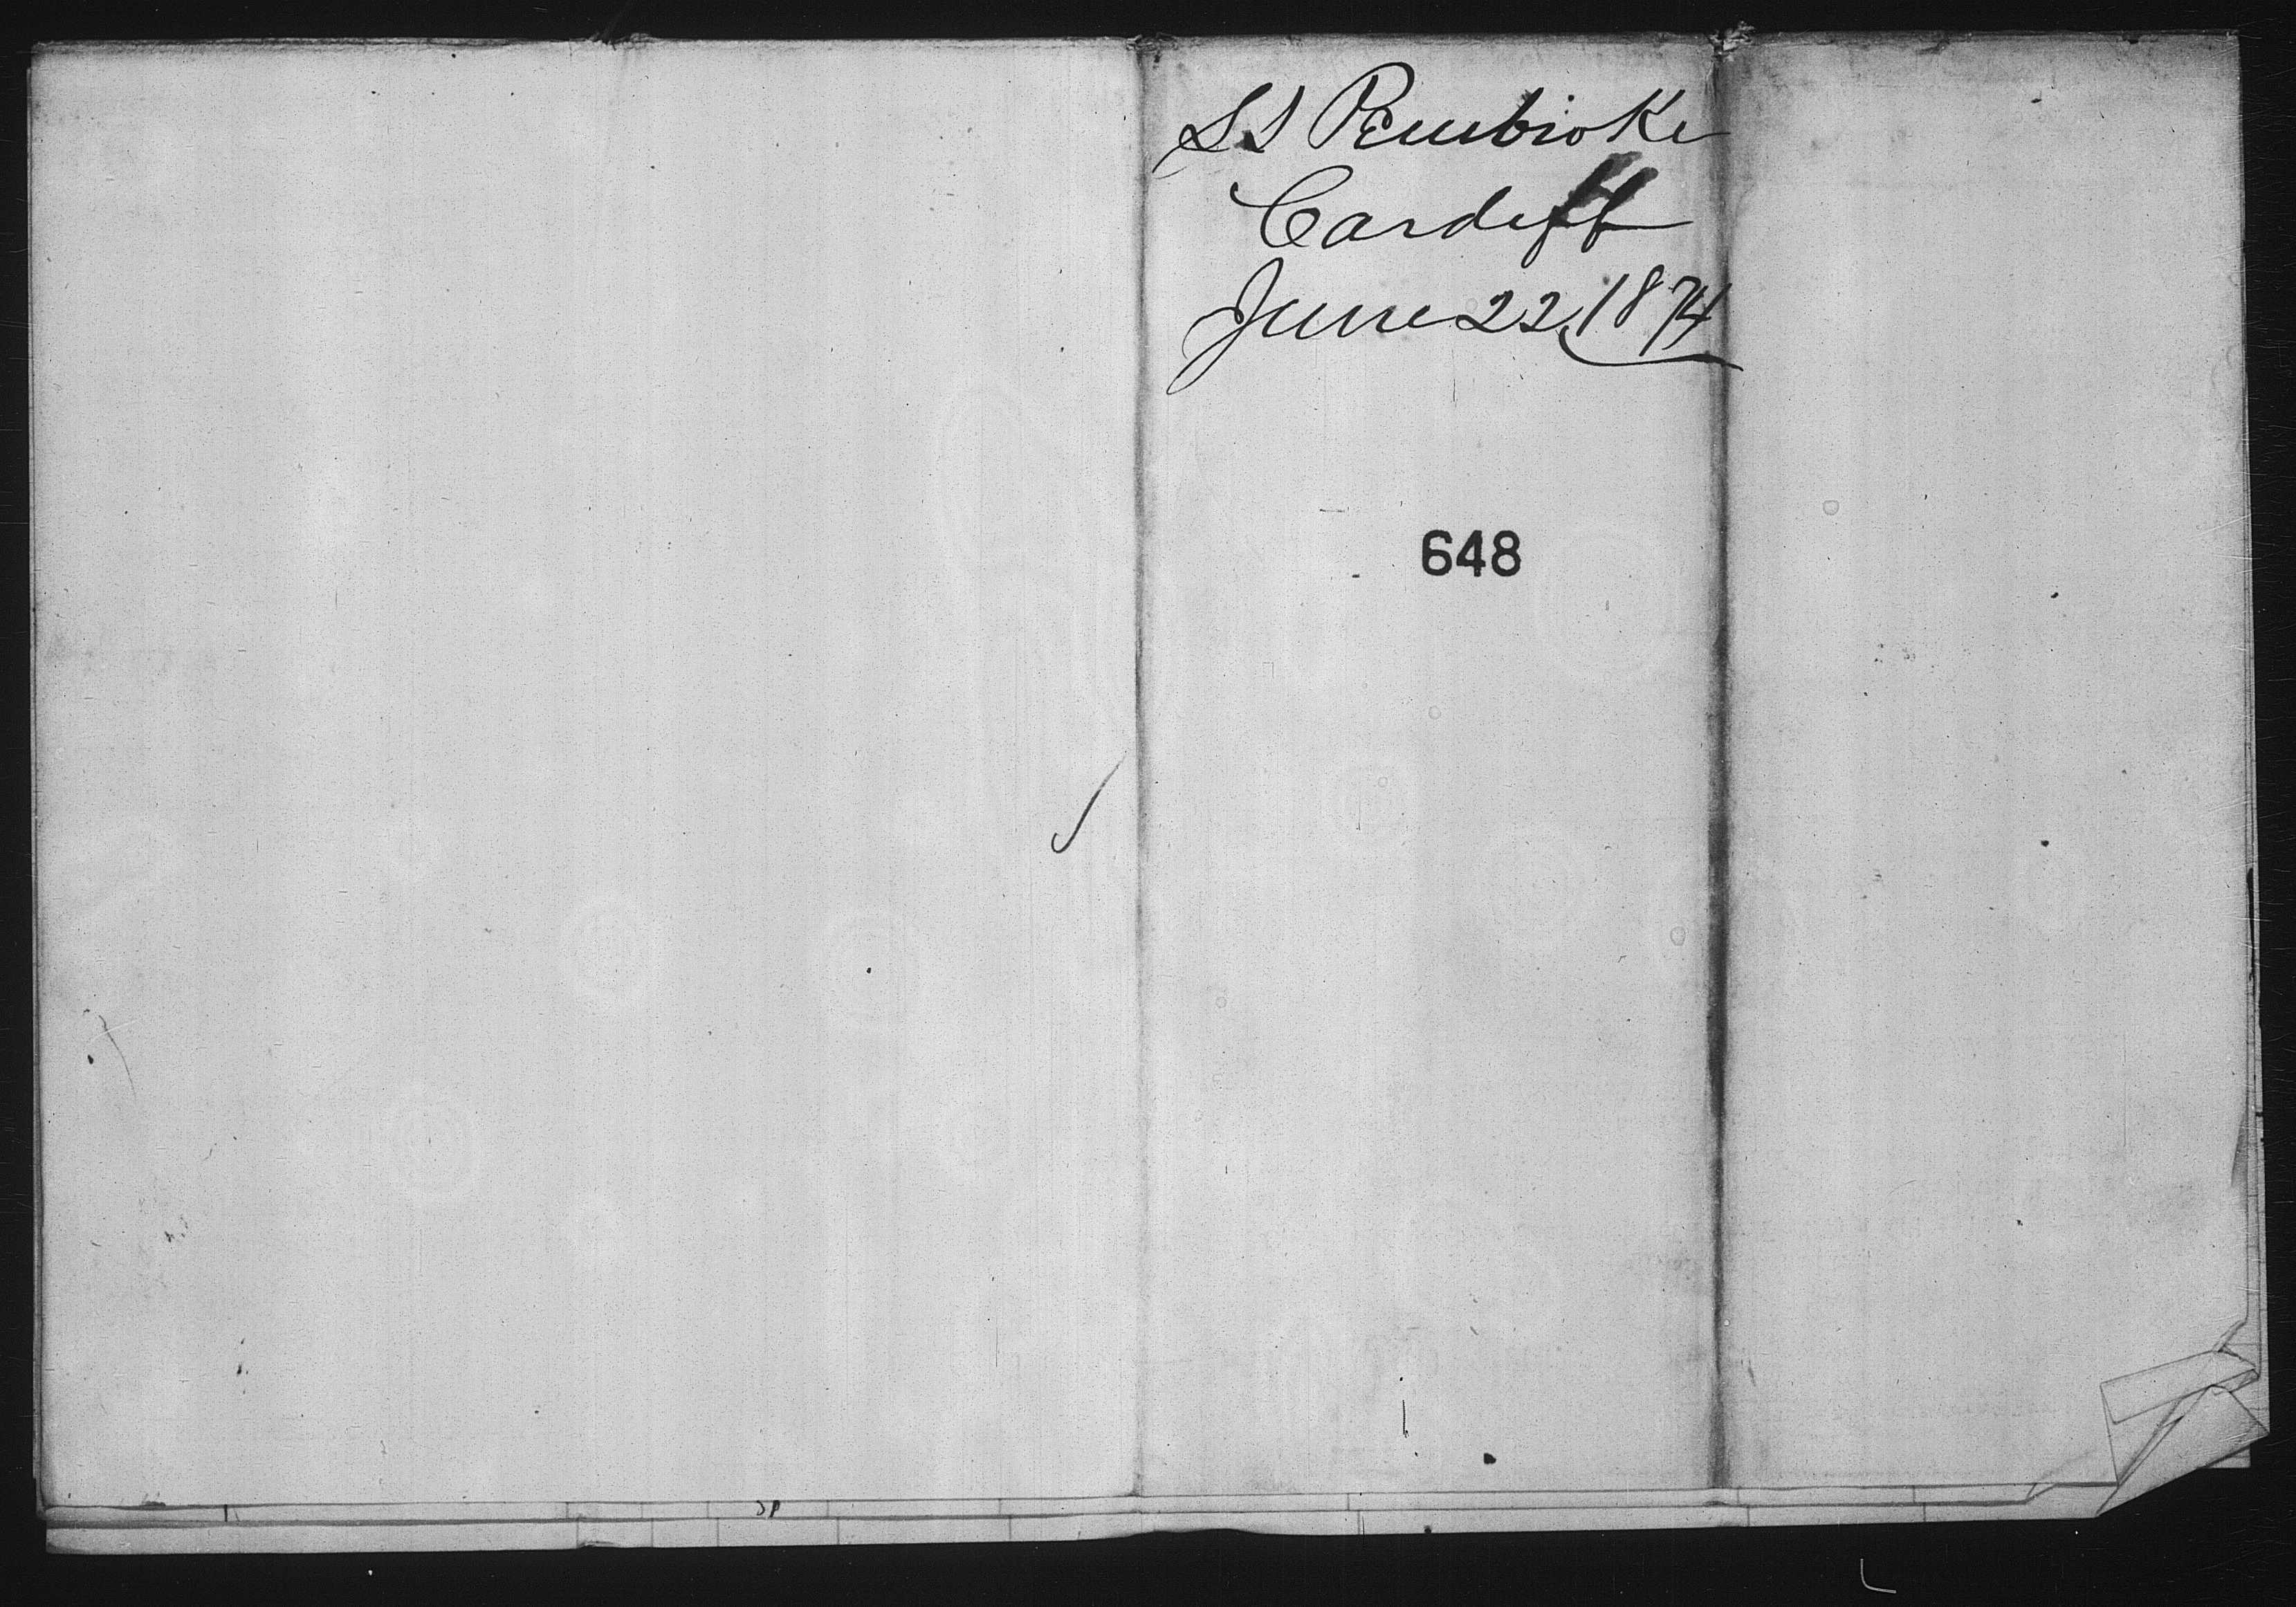 SS Pembroke
Cardiff
June 22, 1874
648